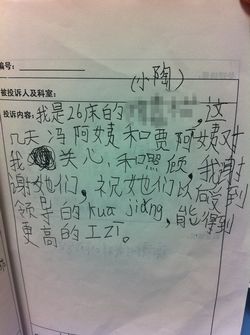 编号:
(小陶)
被投诉人及科室:
投诉内容:我是26床的 ,这
几天冯阿姨和贾阿姨对
我 关心,和照顾,我谢
谢她们,祝她们以后受到
领导的kuā jiǎng,能得到
更高的工Zī。